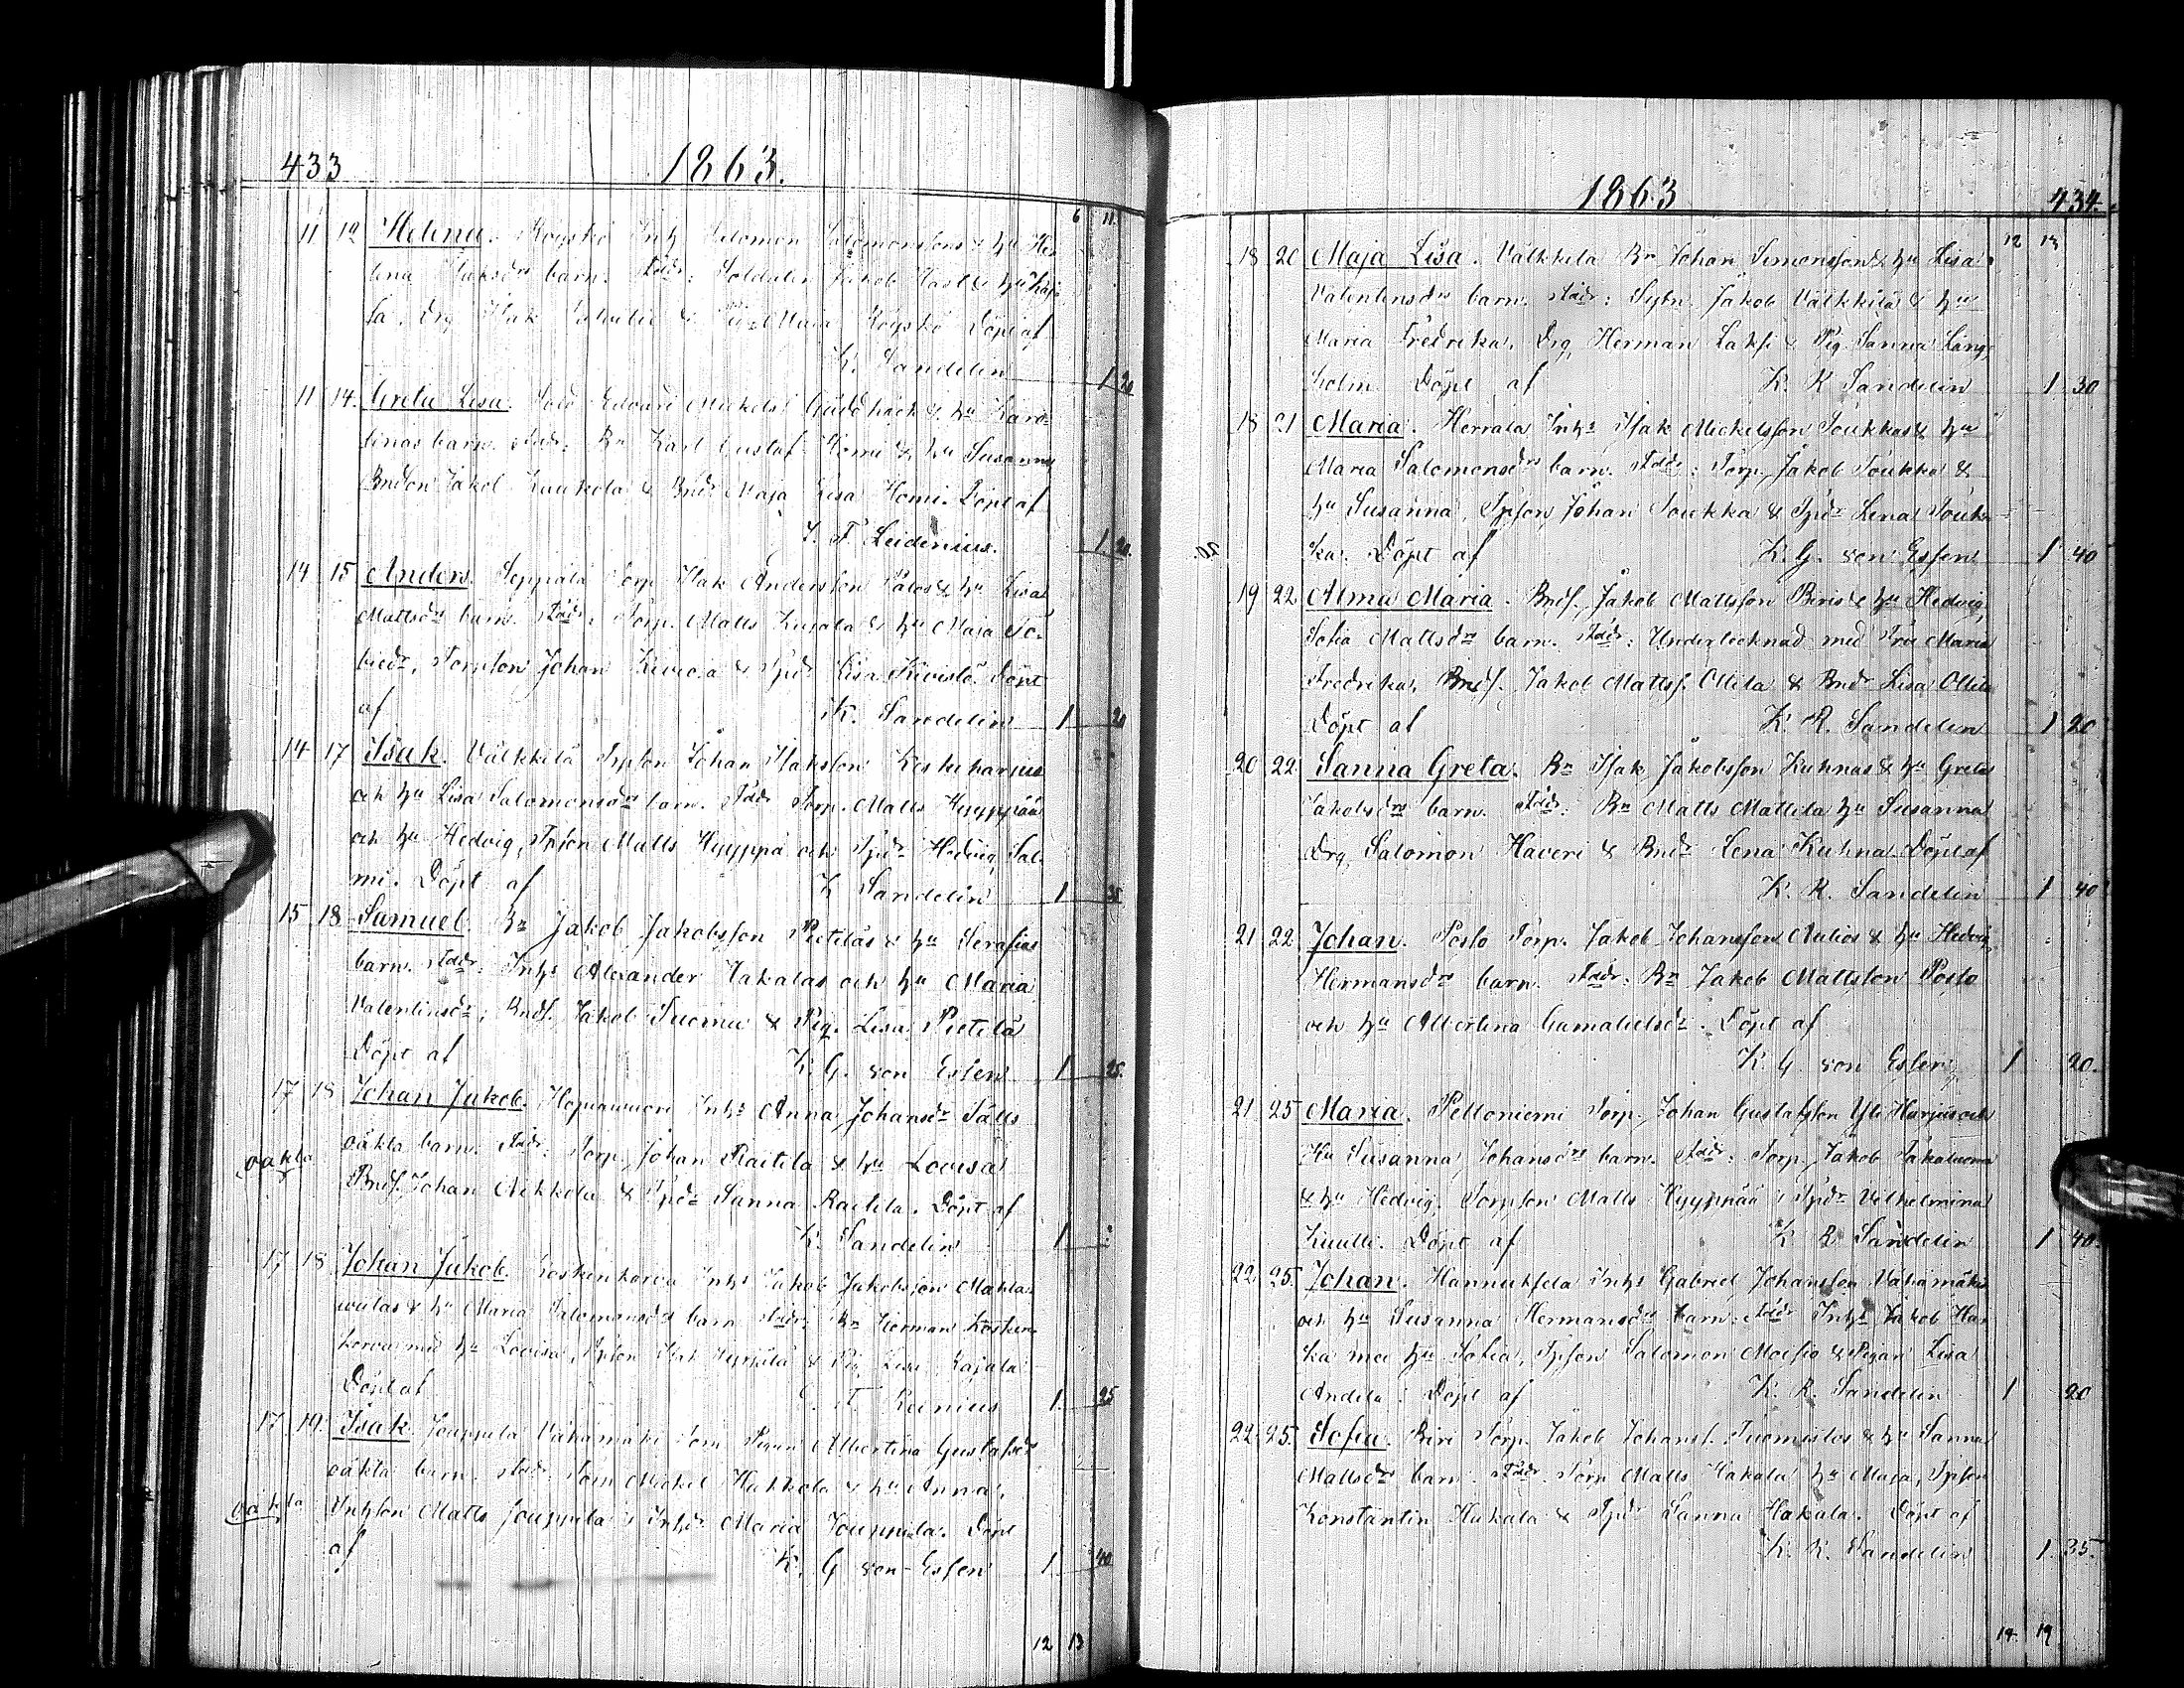 433 1863.
6 11
11 12 Helena. Röyskö Inh: Salomon Salomonssons & hu He-
lena Isaksdrs barn. Faddr: Soldaten Jakob Hast & hu Kaj-
sa, Drg Isak & Maja Röyskö Döpt af
K. Sandelin 1 20
11 14. Greta Lisa. Sold Edvard Mickels: Guldhack & hu Karo-
linas barn. Faddr: Bn Karl Gustaf Homi & hu Susanna
Bndson Jakob Kaukola & Bndr Maja Lisa Homi. Döpt af
J. F. Leidenius. 1 20.
14 15 Anders. Seppälä Torp. Isak Andersson Palos & hu Lisa
Mattsdrs barn. Faddr: Torp. Matts Kujala & hu Maja To-
biedr, Torpson Johan & Tpdr Lisa Kivistö. Döpt
af K. Sandelin 1 20
14 17 Isak. Välkkilä Tpson Johan Isaksson Keskiharjus
och hu Lisa Salomonsdrs barn. Faddr Torp. Matts Hyyppää
och hu Hedvig, Tpson Matts Hyyppä och Tpdr Hedvig Sal-
mi. Döpt af K Sandelin 1 35
15 18 Samuel. Bn Jakob Jakobsson Pietiläs & hu Serafias
barn. Faddr: Inhs Alexander Hakalas och hu Maria
Valentinsdr, Bndss. Jakob Tuomu & Pig. Lisa Pietilä
Döpt af K. G. von Essen 1 25.
17 18 Johan Jakob. Hopiavuori Inhs Anna Johansdr Salls
oäkta oäkta barn. Faddr: Torp. Johan Raitila & hu Lovisa
Bndss. Johan Nikkola & Tpdr Sanna Raitila. Döpt af
K. Sandelin 1
17 18 Johan Jakob. Koskenkorva Inhs Jakob Jakobsson Mahla-
& hu Maria Salomonsdrs barn Faddr: Bn Herman Kosken-
korva med hu Lovisa, Tpson Isak & Pig. Lisa Kajala
Döpt af F. Reinius 1 25
17 19. Isak. Jouppila Vähämäki Torn Pigan Albertina Gustafsdr
oäkta barn. Faddr: Torn Mickel Hakkola & hu Anna,
oäkta Inhson Matts Jouppila & Inhdr Maria Jouppila. Döpt
af K. G von Essen 1. 40
12 13
1863 434.
12 13
18 20 Maja Lisa. Välkkilä Bn Johan Simonsson & hu Lisa
Valentinsdrs barn. Faddr: Sytn. Jakob Välkkilä & hu
Maria Fredrika, Drg. Herman Laksi & Pig Sanna Läng-
holm. Döpt af K. R Sandelin 1 30
18 21 Maria. Herrala Inhs Isak Mickelsson Soukkas & hu
Maria Salomonsdrs barn. Faddr: Torp. Jakob Soukka &
hu Susanna, Tpson Johan Soukka & Tpdr Lena Souk-
20. ka. Döpt af K. G. von Essen 1 40
19 22 Alma Maria. Bndss. Jakob Mattsson Biris & hu Hedvig
Sofia Mattsdrs barn. Faddr: Undertecknad med Fru Maria
Fredrika, Bndss. Jakob Mattss. Ollila & Bndr Lisa Ollila
Döpt af K. R. Sandelin 1 20
20 22 Sanna Greta. Bn Isak Jakobsson Kuhnas & hu Greta
Jakobsdrs barn. Faddr: Bn Matts Mattila hu Susanna
Drg. Salomon Haveri & Bndr Lena Kuhna. Döpt af
K. R. Sandelin 1 40
21 22 Johan. Posto Torp. Jakob Johansson Aulios & hu Hedvig
Hermansdrs barn. Faddr: Bn Jakob Mattsson Posto
och hu Albertina Gamalielsdr. Döpt af
K. G von Essen 1 20.
21 25 Maria. Peltoniemi Torp. Johan Gustafsson Yli Harjus och
Hu Susanna Johansdrs barn. Faddr: Torp. Jakob
& hu Hedvig. Torpson Matts Hyyppää & Tpdr Vilhelmina
Döpt af K R Sandelin 1 40.
22 25. Johan. Hannuksela Inhs Gabriel Johansson Vähämäkis
och hu Susanna Hermansdrs barn. Faddr Inhs Jakob Har
ka med hu Sofia, Tpson Salomon Moisio & Pigan Lisa
Andila. Döpt af K. R. Sandelin 1 20
22 25. Sofia. Biri Torp. Jakob Johanss. Tuomistos & hu Sanna
Mattsdrs barn. Faddr. Torp Matts Hakala hu Maja, Tpson
Konstantin Hakala & Tpdr Sanna Hakala. Döpt af
K. R. Sandelin 1. 35.
14 19